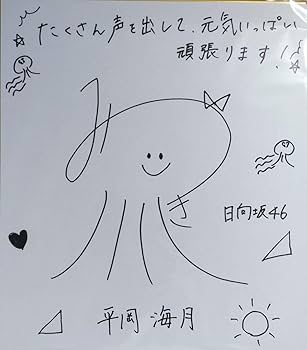 たくさん声を出して、元気いっぱい
頑張ります!
み
き
日向坂46
平岡 海月